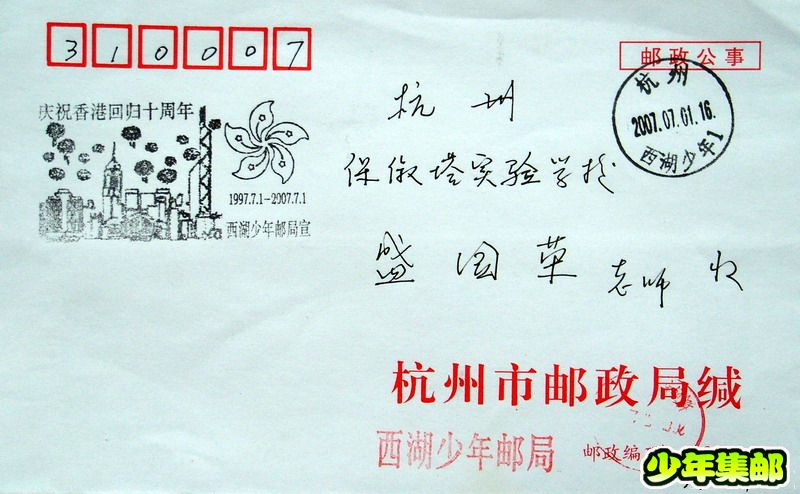 310007
邮政公事
杭州
2007.07.01.16.
西湖少年1
庆祝香港回归十周年
1997.7.1-2007.7.1
西湖少年邮局宣
杭州
保俶塔实验学校
盛国荣老师收
杭州市邮政局缄
西湖少年邮局
邮政编
少年集邮